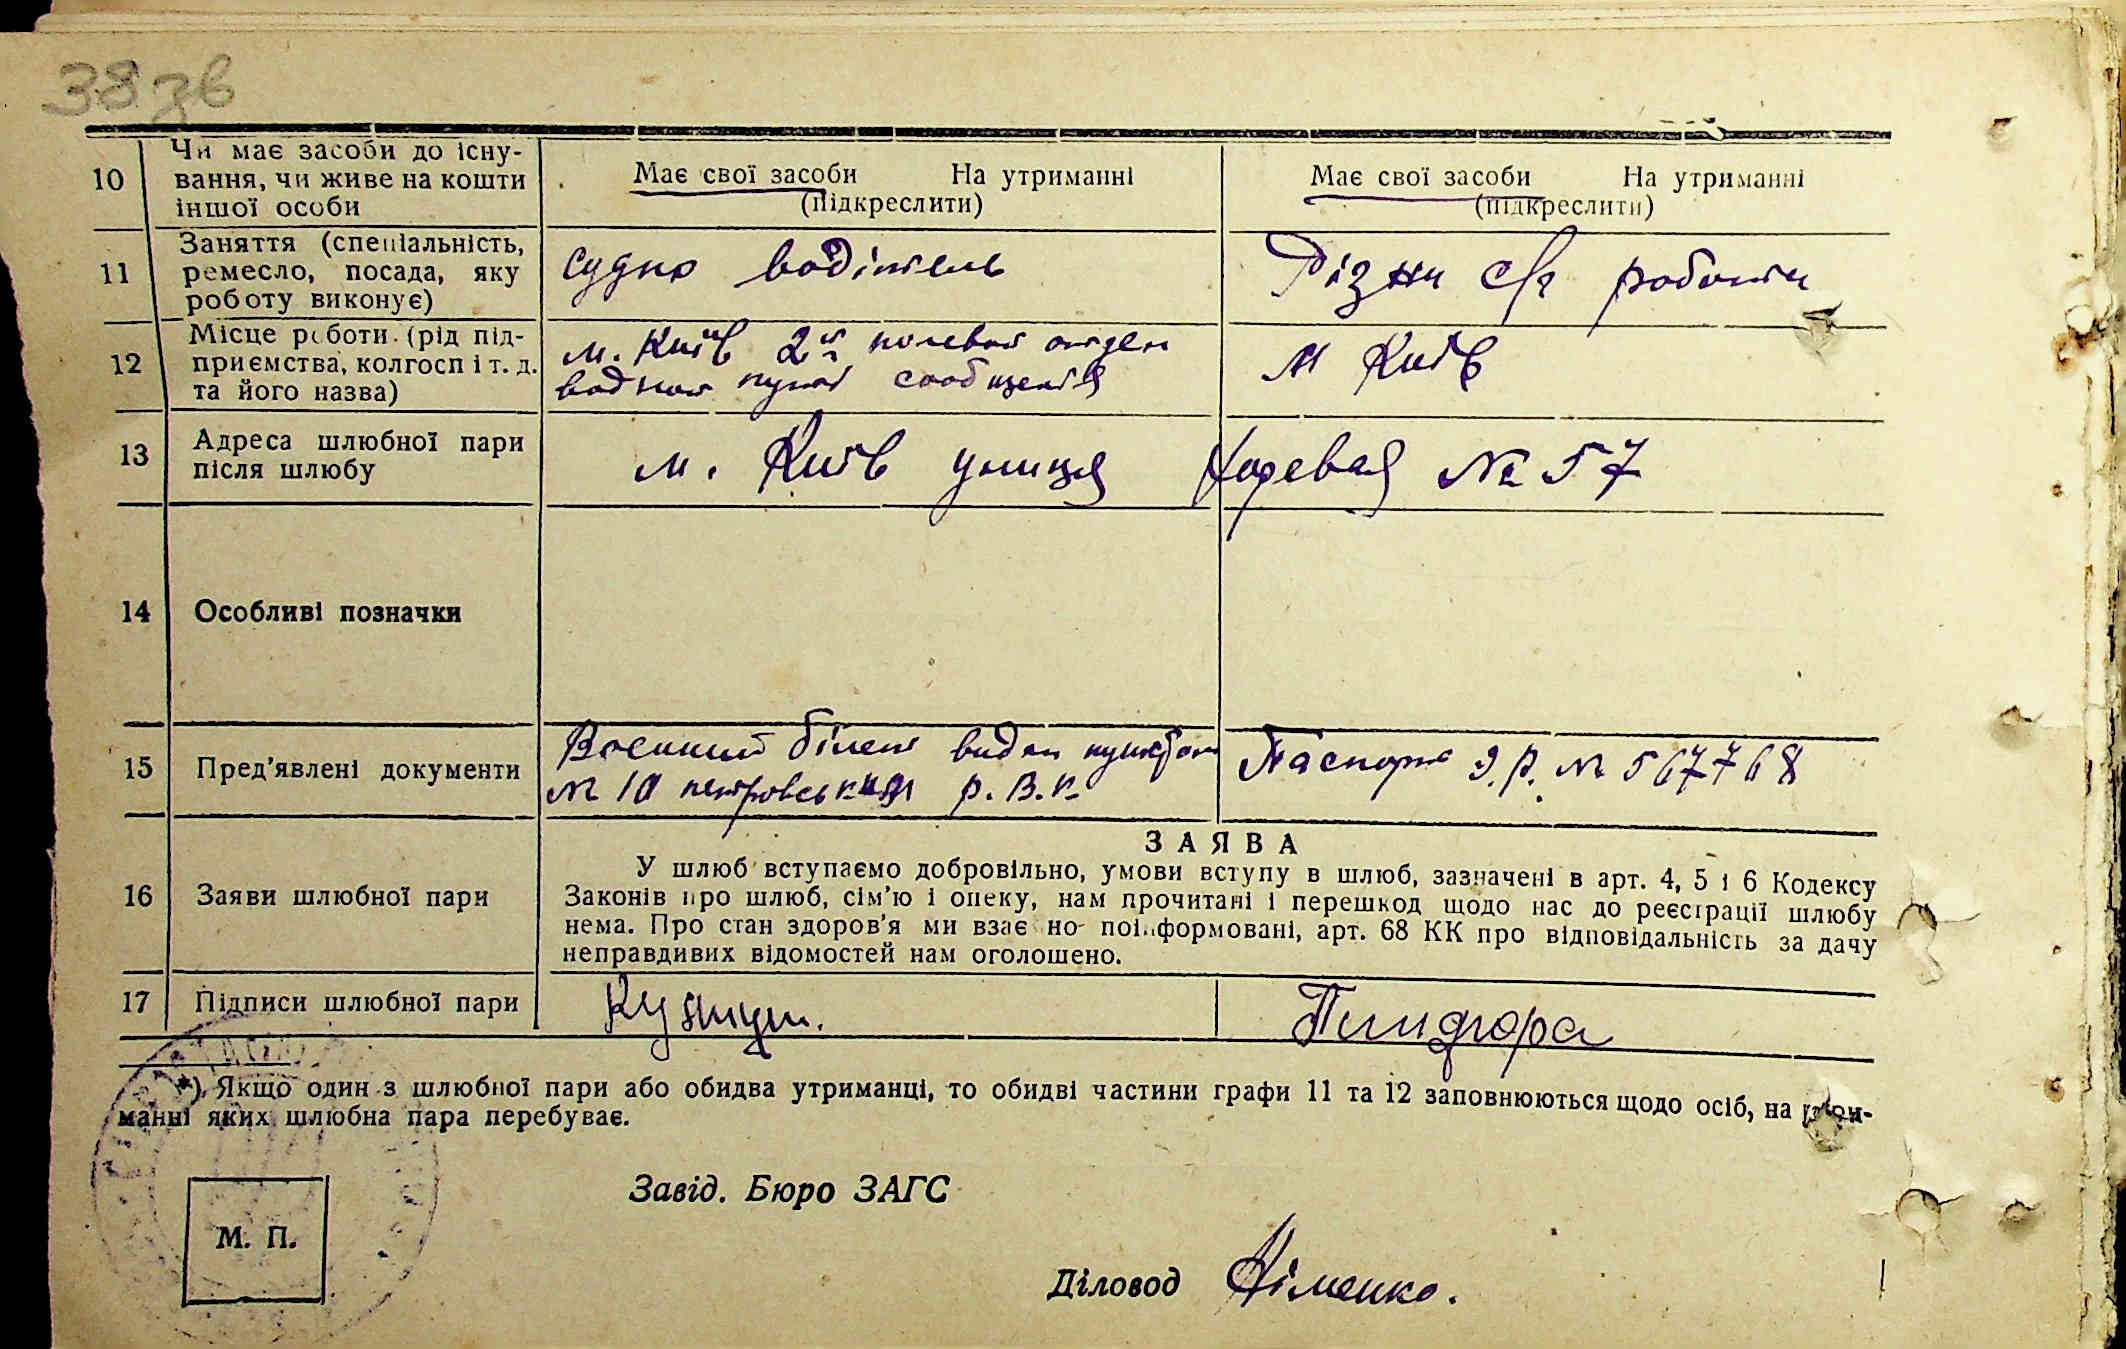 38 зв
10 Чи має засоби до існу-
вання, чи живе на кошти
іншої особи
Має свої засоби На утриманні
(підкреслити)
Має свої засоби На утриманні
(підкреслити)
11 Заняття (спеціальність,
ремесло, посада, яку
роботу виконує)
судно водітель
Різни с/г роботи
12 Місце роботи (рід під-
приємства, колгосп і т. д.
та його назва)
м. Київ 2й
сообщенія
м Київ
13 Адреса шлюбної пари
після шлюбу
м. Київ улиця № 57
14 Особливі позначки
15 Пред'явлені документи
Воєнний білет видан пунктом
№ 10 петровським р. В. К.
Паспорт № 567768
16 Заяви шлюбної пари
ЗАЯВА
У шлюб вступаємо добровільно, умови вступу в шлюб, зазначені в арт. 4, 5 і 6 Кодексу
Законів про шлюб, сім'ю і опеку, нам прочитані і перешкод щодо нас до реєстрації шлюбу
нема. Про стан здоров'я ми взаємно поінформовані, арт. 68 КК про відповідальність за дачу
неправдивих відомостей нам оголошено.
17 Підписи шлюбної пари
*) Якщо один з шлюбної пари або обидва утриманці, то обидві частини графи 11 та 12 заповнюються щодо осіб, на утри-
манні яких шлюбна пара перебуває.
М. П.
Завід. Бюро ЗАГС
Діловод